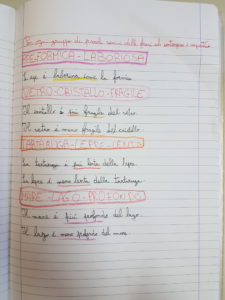 Con ogni gruppo di parole scrivi delle frasi di
APE-FORMICA-LABORIOSA
L'ape è laboriosa come la formica.
VETRO-CRISTALLO-FRAGILE
Il cristallo è più fragile del vetro.
Il vetro è meno fragile del cristallo.
TARTARUGA-LEPRE-LENTA
La tartaruga è più lenta della lepre.
La lepre è meno lenta della tartaruga.
MARE-LAGO-PROFONDO
Il mare è più profondo del lago.
Il lago è meno profondo del mare.